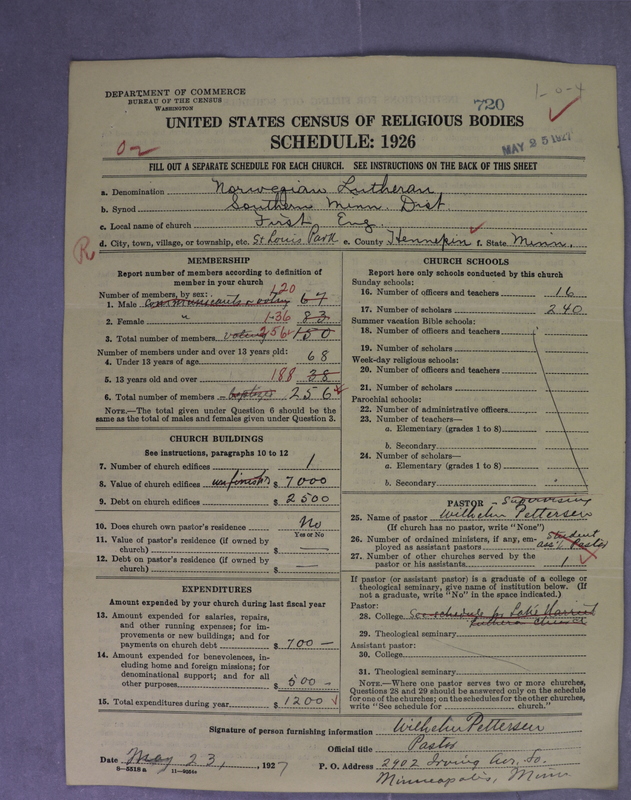 DEPARTMENT OF COMMERCE
BUREAU OF THE CENSUS
WASHINGTON
720
1-0-4
MAY 25 1927
UNITED STATES CENSUS OF RELIGIOUS BODIES
SCHEDULE: 1926
FILL OUT A SEPARATE SCHEDULE FOR EACH CHURCH. SEE INSTRUCTIONS ON THE BACK OF THIS SHEET
a. Denomination Norwegian Lutheran
b. Synod Southern Minn. Dist
c. Local name of church First Eng.
R
d. City, town, village, or township, etc. St Louis Park e. County Hennepin f. State Minn.
MEMBERSHIP
Report number of members according to definition of
member in your church
Number of members, by sex: 120
1. Male communicants voting 67
2. Female " 136 83
3. Total number of members voting 256 150
Number of members under and over 13 years old:
4. Under 13 years of age 68
5. 13 years old and over 188 38
6. Total number of members baptized 256
NOTE.—The total given under Question 6 should be the
same as the total of males and females given under Question 3.
CHURCH BUILDINGS
See instructions, paragraphs 10 to 12
7. Number of church edifices 1
8. Value of church edifices unfinish'd $ 7000
9. Debt on church edifices $ 2500
10. Does church own pastor's residence No
Yes or No
11. Value of pastor's residence (if owned by
church) $ —
12. Debt on pastor's residence (if owned by
church) $ —
EXPENDITURES
Amount expended by your church during last fiscal year
13. Amount expended for salaries, repairs,
and other running expenses; for im-
provements or new buildings; and for
payments on church debt $ 700 —
14. Amount expended for benevolences, in-
cluding home and foreign missions; for
denominational support; and for all
other purposes $ 500 —
15. Total expenditures during year $ 1200
CHURCH SCHOOLS
Report here only schools conducted by this church
Sunday schools:
16. Number of officers and teachers 16
17. Number of scholars 240
Summer vacation Bible schools:
18. Number of officers and teachers
19. Number of scholars
Week-day religious schools:
20. Number of officers and teachers
21. Number of scholars
Parochial schools:
22. Number of administrative officers
23. Number of teachers—
a. Elementary (grades 1 to 8)
b. Secondary
24. Number of scholars—
a. Elementary (grades 1 to 8)
b. Secondary
PASTOR - Supervising
25. Name of pastor Wilhelm Pettersen
(If church has no pastor, write "None")
26. Number of ordained ministers, if any, em-
ployed as assistant pastors Student ass't Pastor
27. Number of other churches served by the
pastor or his assistants 1
If pastor (or assistant pastor) is a graduate of a college or
theological seminary, give name of institution below. (If
not a graduate, write "No" in the space indicated.)
Pastor:
28. College See schedule for Lake Harriet
Lutheran Church
29. Theological seminary
Assistant pastor:
30. College
31. Theological seminary
NOTE.—Where one pastor serves two or more churches,
Questions 28 and 29 should be answered only on the schedule
for one of the churches; on the schedules for the other churches,
write "See schedule for church."
Signature of person furnishing information Wilhelm Pettersen
Official title Pastor
Date May 23, 1927
P. O. Address 2902 Irving Av, So.
Minneapolis, Minn
8-5518 a